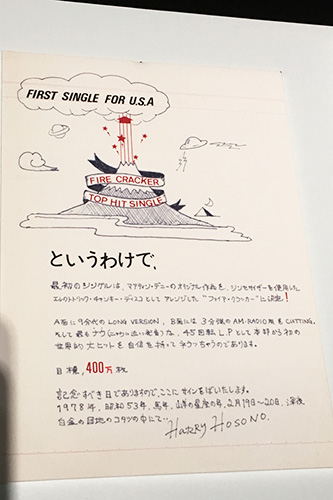 FIRST SINGLE FOR U.S.A
FIRE CRACKER
TOP HIT SINGLE
というわけで、
最初のシングルは、マーティン・デニーのオリジナル作品を、シンセサイザーを使用した
エレクトリック・チャンキー・ディスコとしてアレンジした"ファイアー・クラッカー"に決定!
A面に9分代のLONG VERSION、B面には3分強のAM-RADIO用をCUTTING。
そして最もナウ な、45回転L.Pとして本邦から初の
世界的大ヒットを自信を持ってネラッちゃうのであります。
目標、400万枚
記念すべき日でありますので、ここにサインをばいたします。
1978年、昭和53年、馬年、山羊の星座の年、2月19〜20日、深夜
白金の団地のコタツの中にて…
HARRY HOSONO.